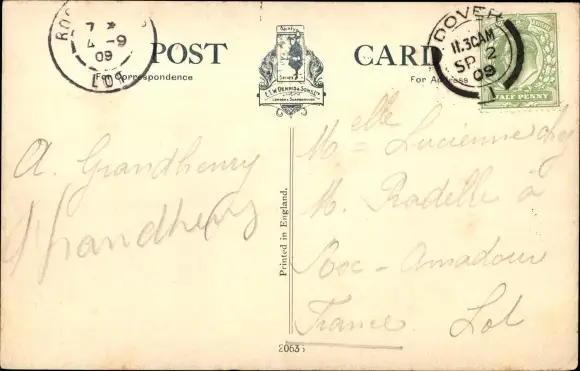 POST CARD
For Correspondence
For Address
E.T.W. DENNIS & SONS LTD
LONDON & SCARBOROUGH
Series
RO
4 - 9
09
LOT
DOVER
11.30AM
SP 2
09
1
HALF PENNY
A. Grandhenry
Grandhenry
Melle Lucienne chez
M. Radelle à
Roc-Amadour
France. Lot
Printed in England.
2063